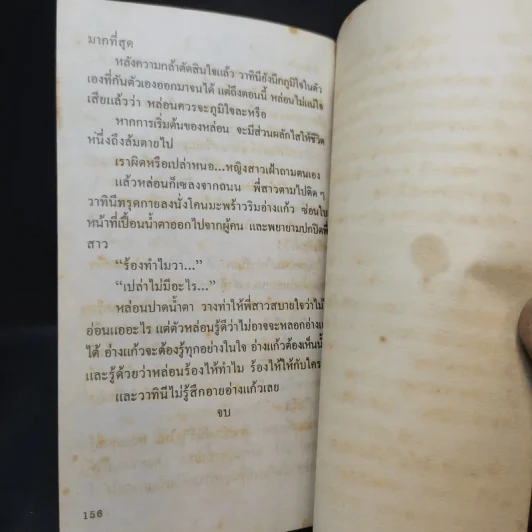 มากที่สุด
หลังความกล้าตัดสินใจแล้ว วาทินียังนึกภูมิใจในตัว
เองที่กันตัวเองออกมาจนได้ แต่ถึงตอนนี้ หล่อนไม่แน่ใจ
เสียแล้วว่า หล่อนควรจะภูมิใจละหรือ
หากการเริ่มต้นของหล่อน จะมีส่วนผลักไสให้ชีวิต
หนึ่งถึงล้มตายไป
เราผิดหรือเปล่าหนอ...หญิงสาวเฝ้าถามตนเอง
แล้วหล่อนก็เซลงจากถนน พี่สาวตามไปติด ๆ
วาทินีทรุดกายลงนั่งโคนมะพร้าวริมอ่างแก้ว ซ่อนใบ
หน้าที่เปื้อนน้ำตาออกไปจากผู้คน และพยายามปกปิดพี่
สาว
“ร้องทำไมวา...”
“เปล่าไม่มีอะไร...”
หล่อนปาดน้ำตา วางท่าให้พี่สาวสบายใจว่าไม่
อ่อนแออะไร แต่ตัวหล่อนรู้ดีว่าไม่อาจจะหลอกอ่างแ
ได้ อ่างแก้วจะต้องรู้ทุกอย่างในใจ อ่างแก้วต้องเห็นน้ำ
และรู้ด้วยว่าหล่อนร้องไห้ทำไม ร้องไห้ให้กับใคร
และวาทินีไม่รู้สึกอายอ่างแก้วเลย
จบ
156